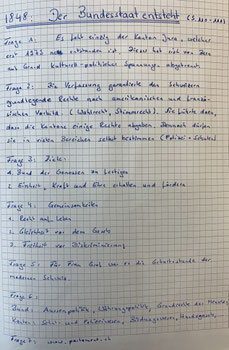 1848: Der Bundesstaat entsteht (S. 200-201)
Frage 1: Es gibt einzig der Kanton Jura, welcher
erst 1979 entstanden ist. Dieser hat sich von Bern
auf Grund kulturell-politischer Spannungen abgetrennt.
Frage 2: Die Verfassung garantierte den Schweizern
grundlegende Rechte nach amerikanischem und französi-
schem Vorbild (Wahlrecht, Stimmrecht). Sie führte dazu,
dass die Kantone einige Rechte abgeben. Dennoch dürfen
sie in vielen Bereichen selbst bestimmen (Polizei + Schulen)
Frage 3: Ziele:
1. Bund der Genossen zu festigen
2. Einheit, Kraft und Ehre erhalten und fördern
Frage 4: Gemeinsamkeiten
1. Recht auf Leben
2. Gleichheit vor dem Gesetz
3. Freiheit vor Diskriminierung
Frage 5: Für Frau Graf war es die Geburtsstunde der
modernen Schweiz.
Frage 6:
Bund: Aussenpolitik, Währungspolitik, Grundrechte der Menschen,
Kanton: Schul- und Polizeiwesen, Bildungswesen,
Frage 7: www.parlament.ch